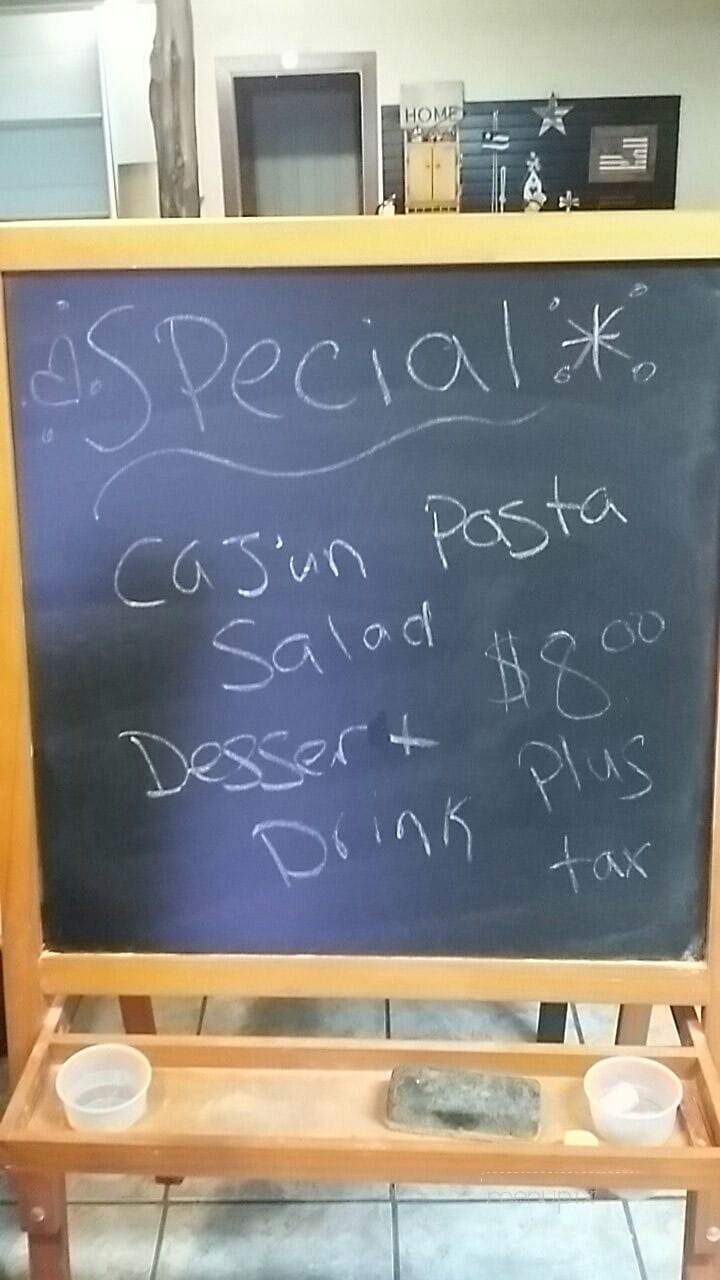 HOME
Special
Cajun Pasta
Salad $8.00
Dessert Plus
Drink tax